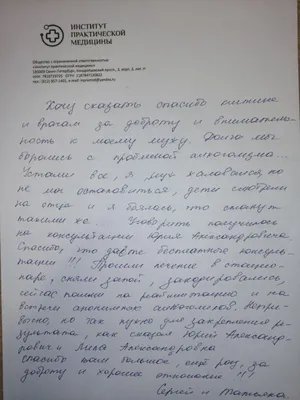 ИНСТИТУТ
ПРАКТИЧЕСКОЙ
МЕДИЦИНЫ
Общество с ограниченной ответственностью
«Институт практической медицины»
Хочу сказать спасибо клинике
и врачам за доброту и вниматель
ность к моему мужу. Долго мы
боролись с проблемой алкоголизма...
Устали все, и муж каловался, но
не мог остановиться, дети смотрели
на отца и я боялась, что станут
такими же... Уговорить получилось
на консультации Юрия Александровича.
Спасибо, что даёте бесплатные консуль
тации!!! Прошли лечение в стацио-
наре, сняли запой, закодировались,
сейчас пошли на реабилитацию и на
встречи анонимных алкоголиков. Непри-
вычно, но так нужно для закрепления ре-
зультата, как сказал Юрий Александр-
ович и Лилия Александровна
спасибо вам большое, ещё раз, за
доброту и хорошее отношение!!!
Сергей и Татьяна